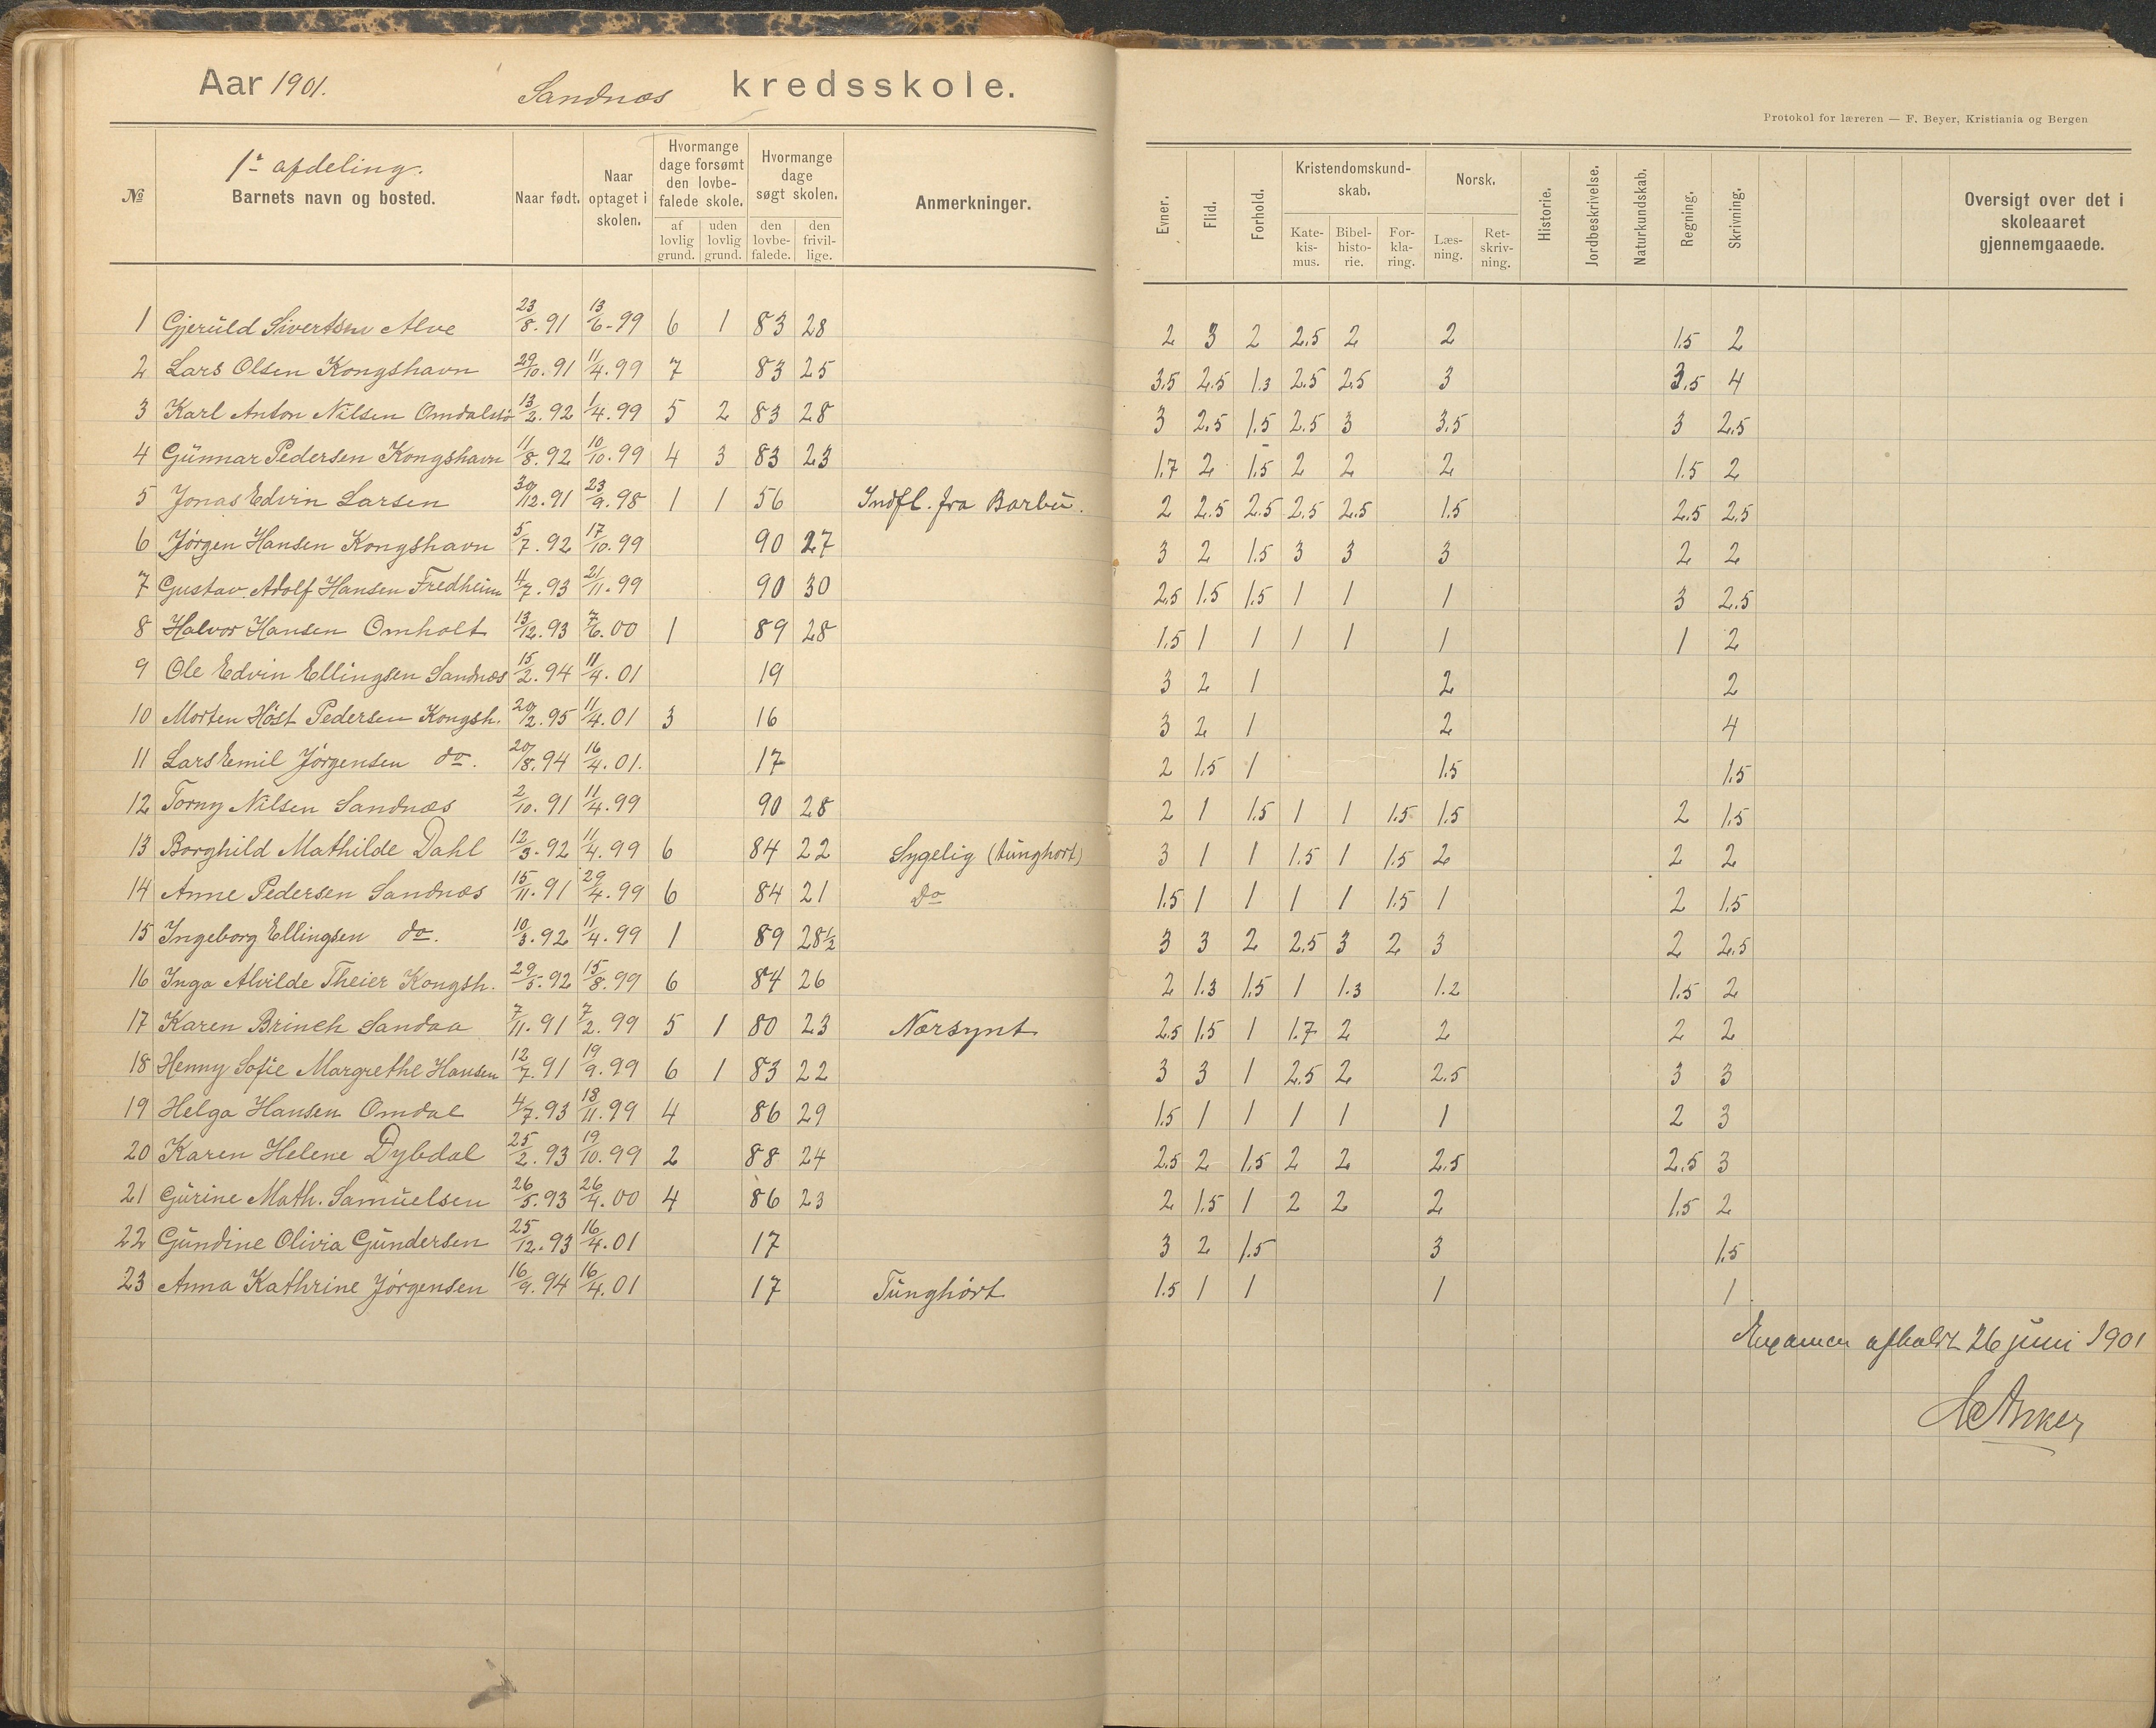 Aar 1901. Sandnæs kredsskole.
Protokol for læreren — F. Beyer, Kristiania og Bergen
№ 1ste afdeling. Barnets navn og bosted. Naar født. Naar optaget i skolen. Hvormange dage forsømt den lovbefalede skole. af lovlig grund. uden lovlig grund. Hvormange dage søgt skolen. den lovbefalede. den frivillige. Anmerkninger.
Evner. Flid. Forhold. Kristendomskundskab. Katekismus. Bibelhistorie. Forklaring. Norsk. Læsning. Retskrivning. Historie. Jordbeskrivelse. Naturkundskab. Regning. Skrivning. Oversigt over det i skoleaaret gjennemgaaede.
1 Gjeruld Sivertsen Alve 23/8.91 13/6-99 6 1 83 28 2 3 2 2.5 2 2 1.5 2
2 Lars Olsen Kongshavn 29/10.91 11/4.99 7 83 25 3.5 2.5 1.3 2.5 2.5 3 3.5 4
3 Karl Anton Nilsen Omdalsø 13/2.92 1/4.99 5 2 83 28 3 2.5 1.5 2.5 3 3.5 3 2.5
4 Gunnar Pedersen Kongshavn 11/8.92 10/10.99 4 3 83 23 1.7 2 1.5 2 2 2 1.5 2
5 Jonas Edvin Larsen 30/12.91 23/9.98 1 1 56 Indfl. fra Barbu. 2 2.5 2.5 2.5 2.5 1.5 2.5 2.5
6 Jørgen Hansen Kongshavn 5/7.92 17/10.99 90 27 3 2 1.5 3 3 3 2 2
7 Gustav Adolf Hansen Fredheim 4/7.93 21/11.99 90 30 2.5 1.5 1.5 1 1 1 3 2.5
8 Halvor Hansen Omholt 13/12.93 7/6.00 1 89 28 1.5 1 1 1 1 1 1 2
9 Ole Edvin Ellingsen Sandnæs 15/2.94 11/4.01 19 3 2 1 2 2
10 Morten Høst Pedersen Kongsh. 20/2.95 11/4.01 3 16 3 2 1 2 4
11 Lars Emil Jørgensen do. 20/8.94 16/4.01. 17 2 1.5 1 1.5 1.5
12 Torny Nilsen Sandnæs 2/10.91 11/4.99 90 28 2 1 1.5 1 1 1.5 1.5 2 1.5
13 Borghild Mathilde Dahl 12/3.92 11/4.99 6 84 22 Sygelig (tunghørt) 3 1 1 1.5 1 1.5 2 2 2
14 Anne Pedersen Sandnæs 15/11.91 29/4.99 6 84 21 Do 1.5 1 1 1 1 1.5 1 2 1.5
15 Ingeborg Ellingsen do. 10/3.92 11/4.99 1 89 28½ 3 3 2 2.5 3 2 3 2 2.5
16 Inga Alvilde Theier Kongsh. 29/5.92 15/8.99 6 84 26 2 1.3 1.5 1 1.3 1.2 1.5 2
17 Karen Brinch Sandaa 7/11.91 7/2.99 5 1 80 23 Nærsynt 2.5 1.5 1 1.7 2 2 2 2
18 Henny Sofie Margrethe Hansen 12/7.91 19/9.99 6 1 83 22 3 3 1 2.5 2 2.5 3 3
19 Helga Hansen Omdal 4/7.93 18/11.99 4 86 29 1.5 1 1 1 1 1 2 3
20 Karen Helene Dybdal 25/2.93 19/10.99 2 88 24 2.5 2 1.5 2 2 2.5 2.5 3
21 Gurine Math. Samuelsen 26/5.93 26/4.00 4 86 23 2 1.5 1 2 2 2 1.5 2
22 Gundine Olivia Gundersen 25/12.93 16/4.01 17 3 2 1.5 3 1.5
23 Anna Kathrine Jørgensen 16/9.94 16/4.01 17 Tunghørt 1.5 1 1 1 1
Examen afholdt 26 juni 1901
Anker